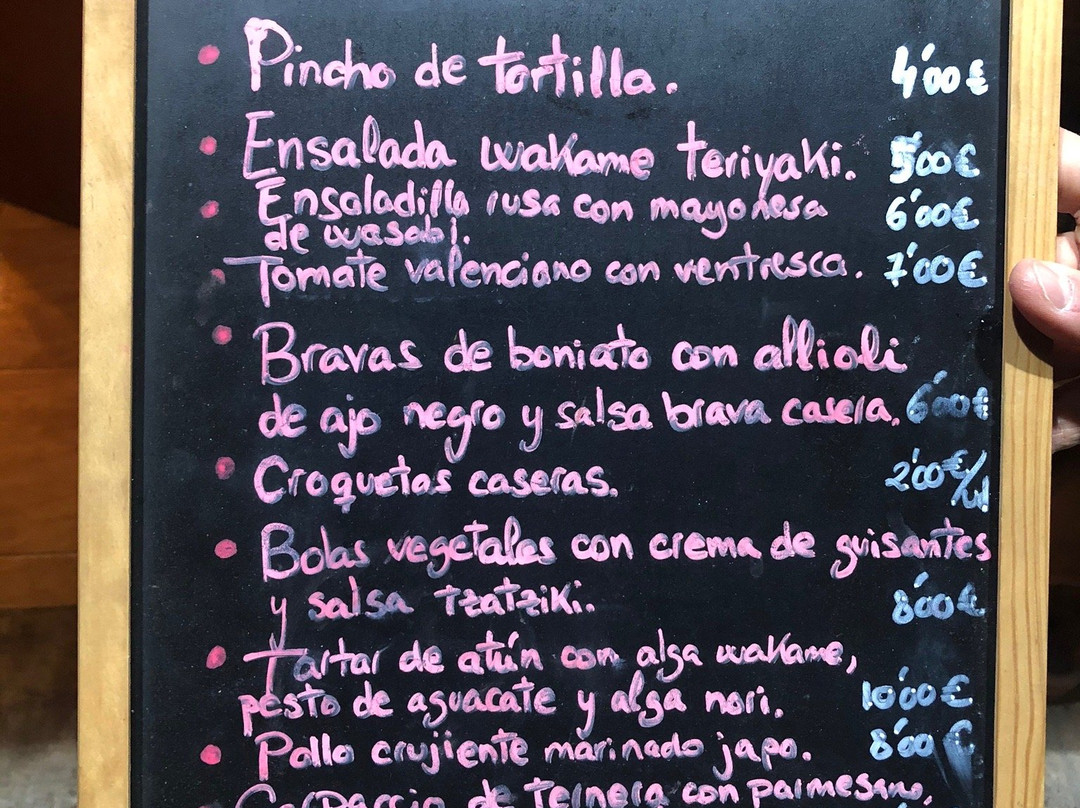 Pincho de tortilla. 4'00€
Ensalada wakame teriyaki. 5'00€
Ensaladilla rusa con mayonesa 6'00€
de wasabi.
Tomate valenciano con ventresca. 7'00€
Bravas de boniato con allioli
de ajo negro y salsa brava casera. 6'00€
Croquetas caseras. 2'00€/ud
Bolas vegetales con crema de guisantes
y salsa tzatziki. 8'00€
Tartar de atún con alga wakame,
pesto de aguacate y alga nori. 10'00€
Pollo crujiente marinado japo. 8'00€
Carpaccio de ternera con parmesano,